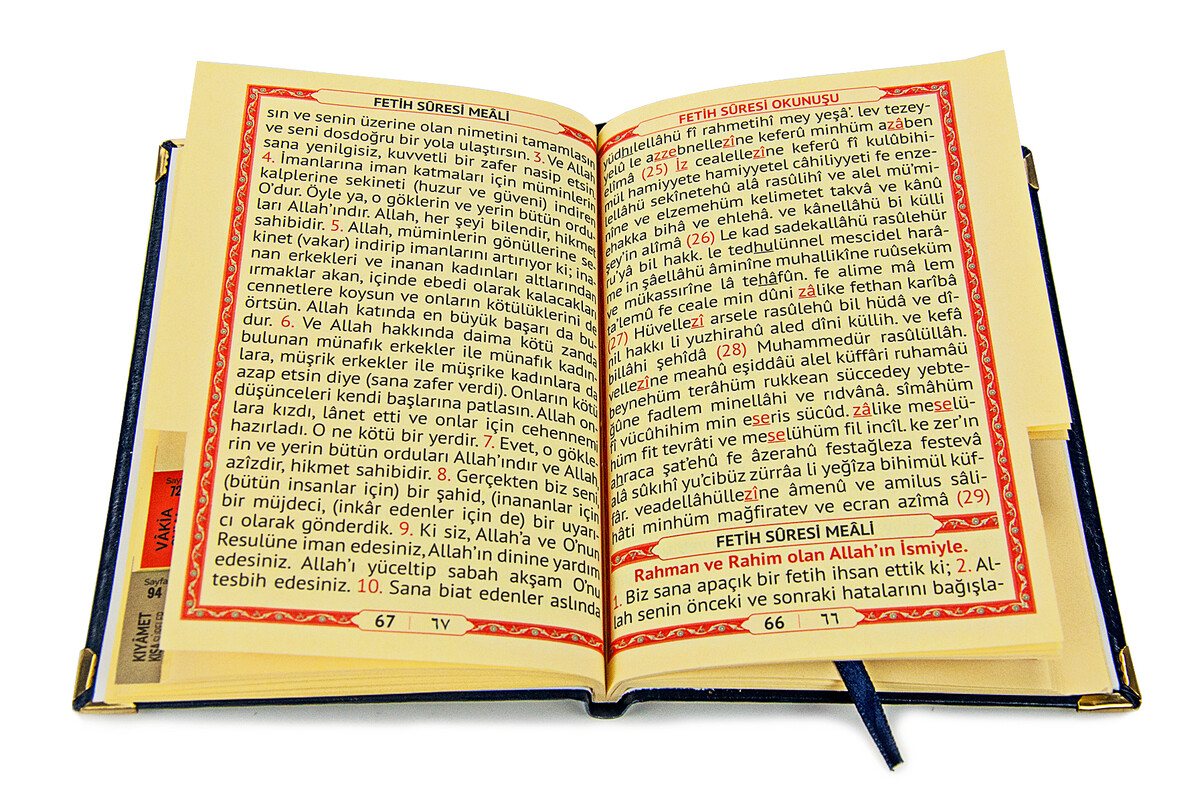 FETİH SÛRESİ OKUNUŞU
yüdhılellâhü fî rahmetihî mey yeşâ'. lev tezey-
yelû le azzebnellezîne keferû minhüm azâben
elîmâ (25) İz cealellezîne keferû fî kulûbihi-
mül hamiyyete hamiyyetel câhiliyyeti fe enze-
lellâhü sekînetehû alâ rasûlihî ve alel mü'mi-
nîne ve elzemehüm kelimetet takvâ ve kânû
ehakka bihâ ve ehlehâ. ve kânellâhü bi külli
şey'in alîmâ (26) Le kad sadekallâhü rasûlehür
ru'yâ bil hakk. le tedhulünnel mescidel harâ-
me in şâellâhü âminîne muhallikîne ruûseküm
ve mükassırîne lâ tehâfûn. fe alime mâ lem
ta'lemû fe ceale min dûni zâlike fethan karîbâ
(27) Hüvellezî arsele rasûlehû bil hüdâ ve dî-
nil hakkı li yuzhirahû aled dîni küllih. ve kefâ
billâhi şehîdâ (28) Muhammedür rasûlüllâh.
vellezîne meahû eşiddâü alel küffâri ruhamâü
beynehüm terâhüm rukkean süccedey yebte-
ğûne fadlem minellâhi ve rıdvânâ. sîmâhüm
fî vücûhihim min eseris sücûd. zâlike meselü-
hüm fit tevrâti ve meselühüm fil incîl. ke zer'ın
ahraca şat'ehû fe âzerahû festağleza festevâ
alâ sûkıhî yu'cibüz zürrâa li yeğîza bihimül küf-
fâr. veadellâhüllezîne âmenû ve amilus sâli-
hâti minhüm mağfiratev ve ecran azîmâ (29)
FETİH SÛRESİ MEÂLİ
Rahman ve Rahim olan Allah'ın İsmiyle.
1. Biz sana apaçık bir fetih ihsan ettik ki; 2. Al-
lah senin önceki ve sonraki hatalarını bağışla-
66 | ٦٦
FETİH SÛRESİ MEÂLİ
sın ve senin üzerine olan nimetini tamamlasın
ve seni dosdoğru bir yola ulaştırsın. 3. Ve Allah
sana yenilgisiz, kuvvetli bir zafer nasip etsin
4. İmanlarına iman katmaları için müminlerin
kalplerine sekineti (huzur ve güveni) indiren
O'dur. Öyle ya, o göklerin ve yerin bütün ordu-
ları Allah'ındır. Allah, her şeyi bilendir, hikmet
sahibidir. 5. Allah, müminlerin gönüllerine se-
kinet (vakar) indirip imanlarını artırıyor ki; ina-
nan erkekleri ve inanan kadınları altlarından
ırmaklar akan, içinde ebedi olarak kalacakları
cennetlere koysun ve onların kötülüklerini de
örtsün. Allah katında en büyük başarı da bu-
dur. 6. Ve Allah hakkında daima kötü zanda
bulunan münafık erkekler ile münafık kadın-
lara, müşrik erkekler ile müşrike kadınlara da
azap etsin diye (sana zafer verdi). Onların kötü
düşünceleri kendi başlarına patlasın. Allah on-
lara kızdı, lânet etti ve onlar için cehennemi
hazırladı. O ne kötü bir yerdir. 7. Evet, o gökle-
rin ve yerin bütün orduları Allah'ındır ve Allah,
azîzdir, hikmet sahibidir. 8. Gerçekten biz seni
(bütün insanlar için) bir şahid, (inananlar için)
bir müjdeci, (inkâr edenler için de) bir uyarı-
cı olarak gönderdik. 9. Ki siz, Allah'a ve O'nun
Resulüne iman edesiniz, Allah'ın dinine yardım
edesiniz. Allah'ı yüceltip sabah akşam O'nu
tesbih edesiniz. 10. Sana biat edenler aslında
67 | ٦٧
72
VÂKIA
Sayfa
94
KIYÂMET